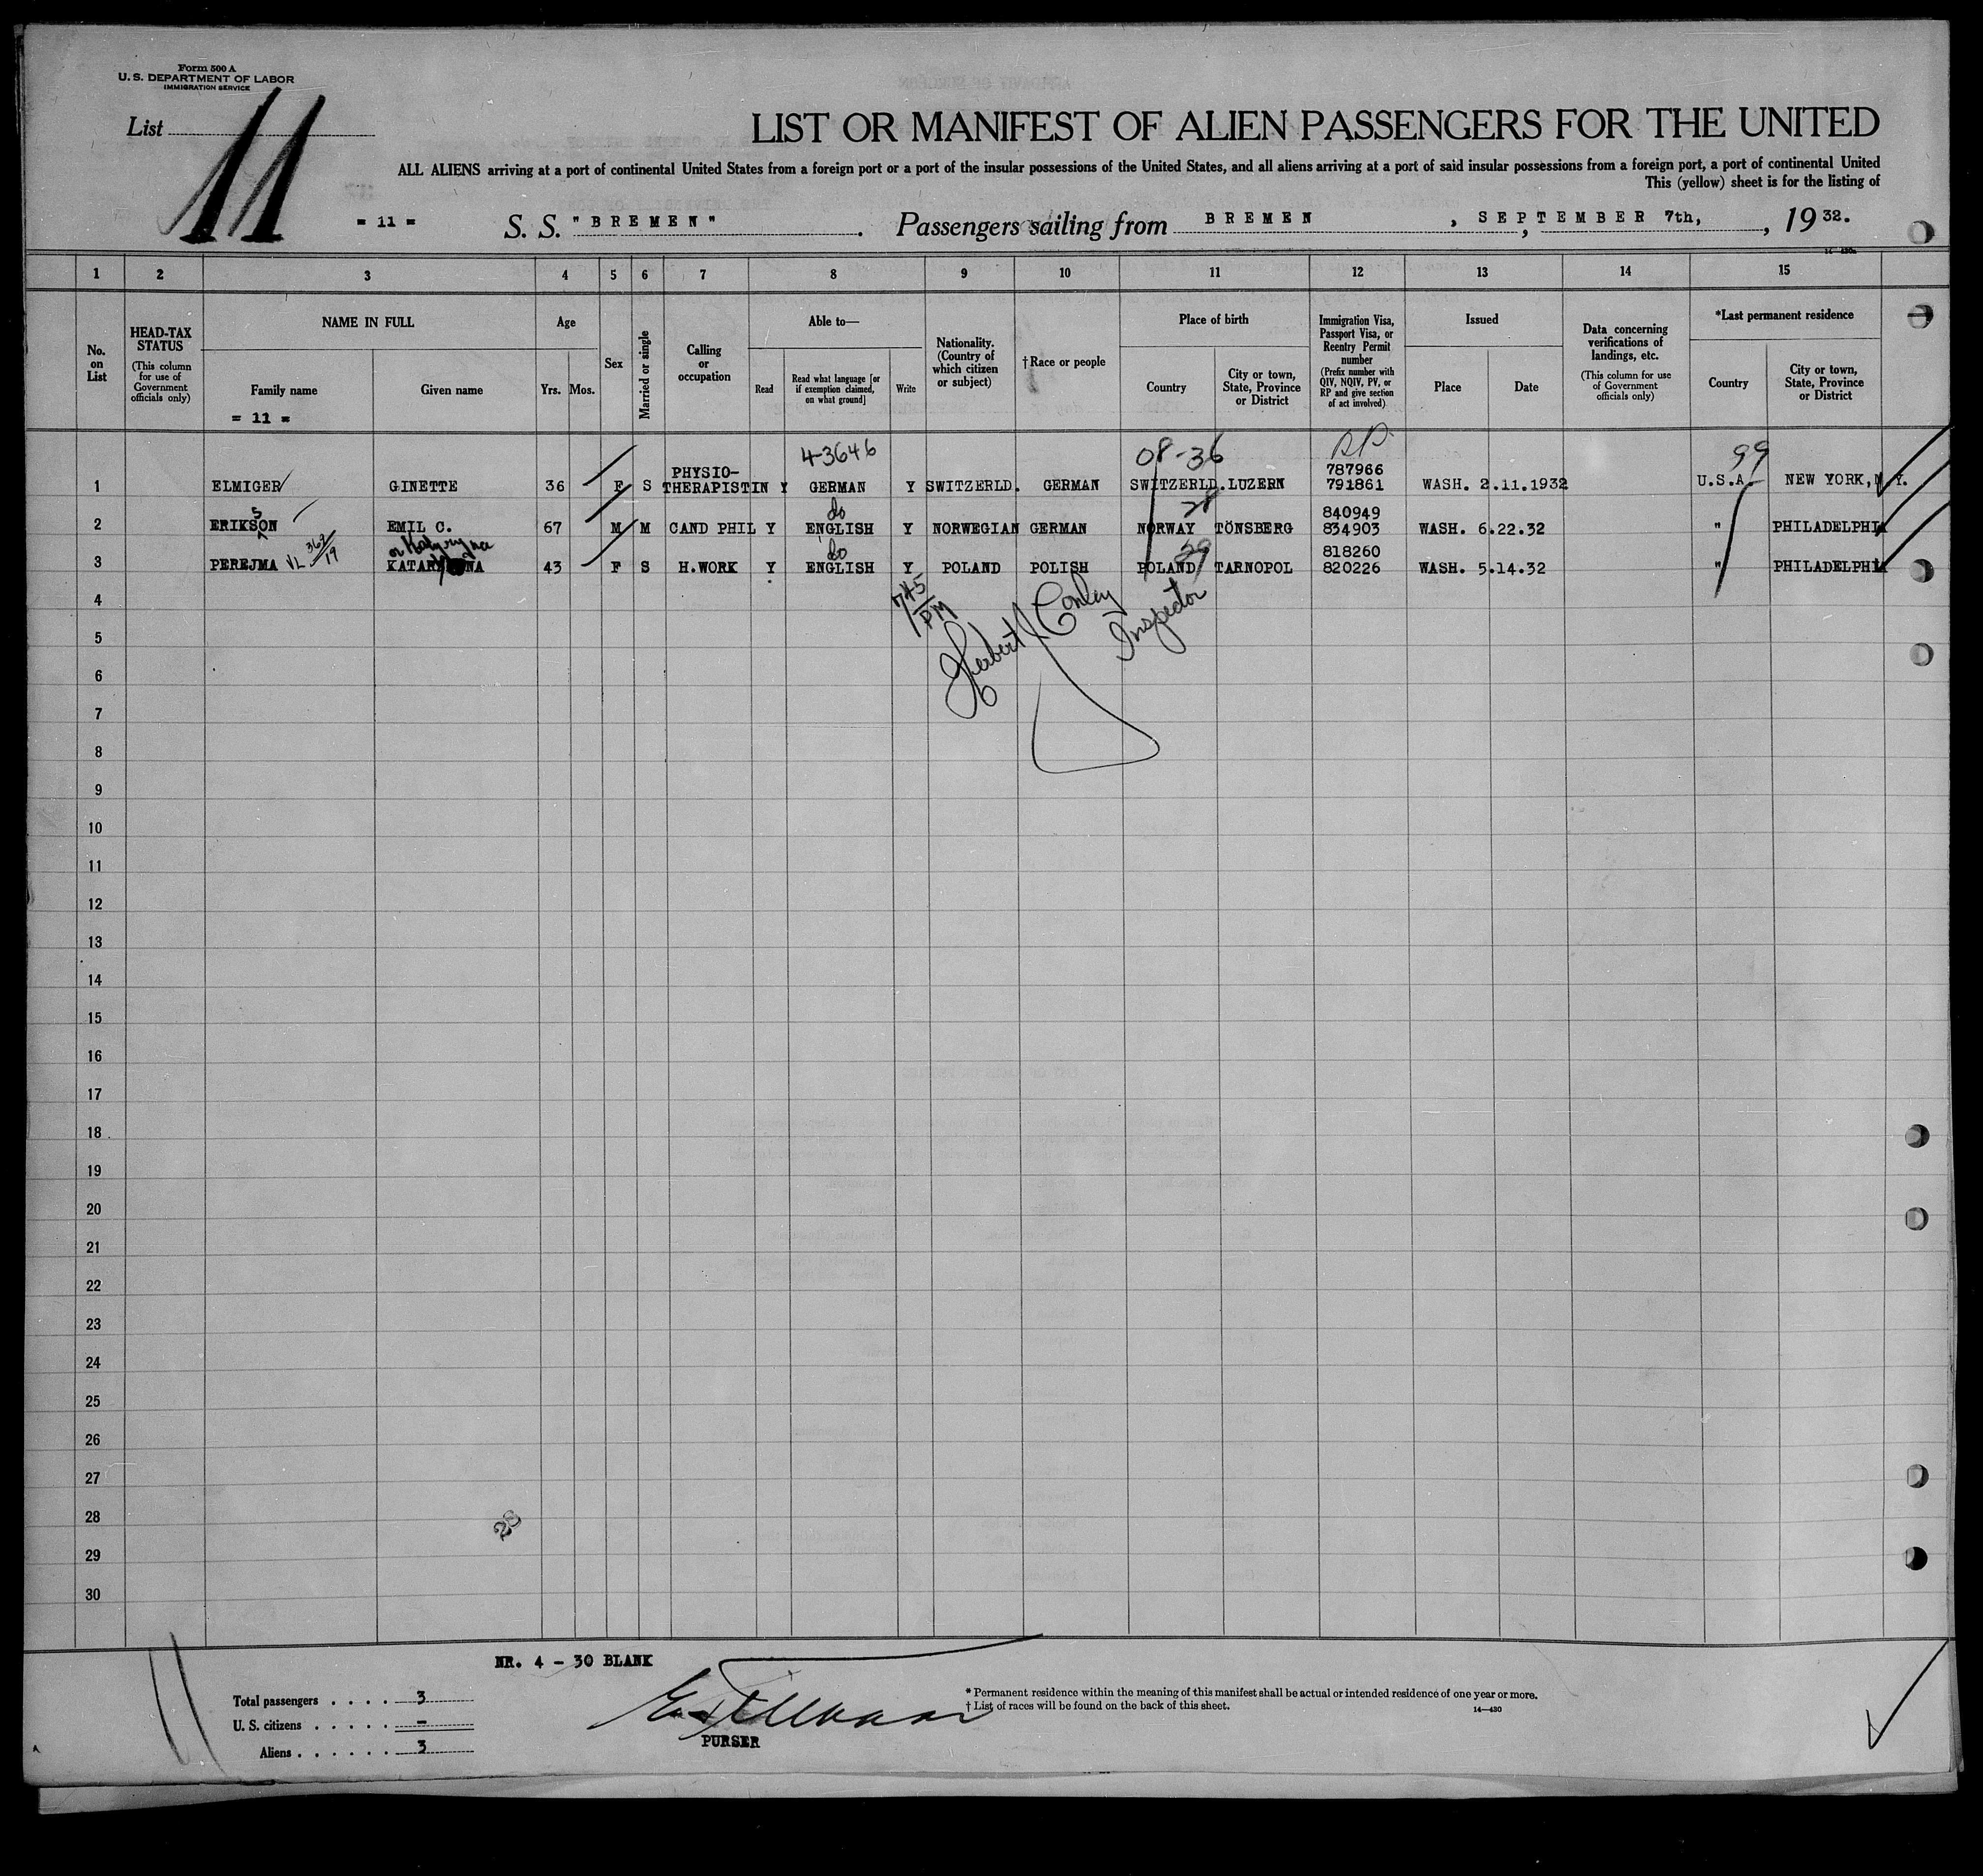 Form 500 A
U. S. DEPARTMENT OF LABOR
IMMIGRATION SERVICE
List 11
LIST OR MANIFEST OF ALIEN PASSENGERS FOR THE UNITED
ALL ALIENS arriving at a port of continental United States from a foreign port or a port of the insular possessions of the United States, and all aliens arriving at a port of said insular possessions from a foreign port, a port of continental United
This (yellow) sheet is for the listing of
= 11 = S. S. "BREMEN". Passengers sailing from BREMEN, SEPTEMBER 7th, 1932.
14—430a
1 2 3 4 5 6 7 8 9 10 11 12 13 14 15
No. on List
HEAD-TAX STATUS (This column for use of Government officials only)
NAME IN FULL
Family name
Given name
= 11 =
Age
Yrs. Mos.
Sex
Married or single
Calling or occupation
Able to—
Read
Read what language [or if exemption claimed, on what ground]
Write
Nationality. (Country of which citizen or subject)
† Race or people
Place of birth
Country
City or town, State, Province or District
Immigration Visa, Passport Visa, or Reentry Permit number (Prefix number with QIV, NQIV, PV, or RP and give section of act involved)
Issued
Place
Date
Data concerning verifications of landings, etc. (This column for use of Government officials only)
*Last permanent residence
Country
City or town, State, Province or District
4-3646 08-36 RP 99
PHYSIO- 787966
1 ELMIGER GINETTE 36 F S THERAPISTIN Y GERMAN Y SWITZERLD. GERMAN SWITZERLD. LUZERN 791861 WASH. 2.11.1932 U.S.A. NEW YORK, N.Y.
s do 28 840949
2 ERIKSON EMIL C. 67 M M CAND PHIL Y ENGLISH Y NORWEGIAN GERMAN NORWAY TÖNSBERG 834903 WASH. 6.22.32 " PHILADELPHIA
VL 369/19 or Katarzyna do 29 818260
3 PEREJMA 43 F S H.WORK Y ENGLISH Y POLAND POLISH POLAND TARNOPOL 820226 WASH. 5.14.32 " PHILADELPHIA
4
745 PM
Herbert J Conley
Inspector
5
6
7
8
9
10
11
12
13
14
15
16
17
18
19
20
21
22
23
24
25
26
27
28
29
30
28
NR. 4 - 30 BLANK
Total passengers . . . . 3
U. S. citizens . . . . . —
Aliens . . . . . . 3
PURSER
* Permanent residence within the meaning of this manifest shall be actual or intended residence of one year or more.
† List of races will be found on the back of this sheet.
14—430